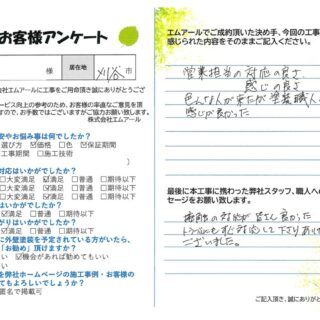 お客様アンケート
様
居在地
刈谷
市
式会社エムアールに工事をご用命頂き誠にありがとうござ
ービス向上の参考のため、お客様の率直なご意見を頂
ますので、お手数ではございますがご協力お願い致します。
株式会社エムアール
安やお悩み事は何でしたか？
選び方 ☑価格 □色 ☑保証期間
工事期間 □施工技術
対応はいかがでしたか？
□大変満足 ☑満足 □普通 □期待以下
はいかがでしたか？
□大変満足 ☑満足 □普通 □期待以下
いかがでしたか？
満足 ☑満足 □普通 □期待以下
に外壁塗装を予定されている方がいたら、
「お勧め」頂けますか？
い ☑機会があれば勧めてもいい
い
を弊社ホームページの施工事例・お客様の
てもよろしいでしょうか？
匿名で掲載可
エムアールでご成約頂いた決め手、今回の工事
感じられた内容をそのままご記入ください。
営業担当の対応の良さ
感じの良さ
色んな人が来たが塗装職人
感じが良かった
最後に本工事に携わった弊社スタッフ、職人へ
セージをお願い致します。
対応が皆さん良かった
対応して下さりあり
ございました。
ご記入頂き、誠にありがと